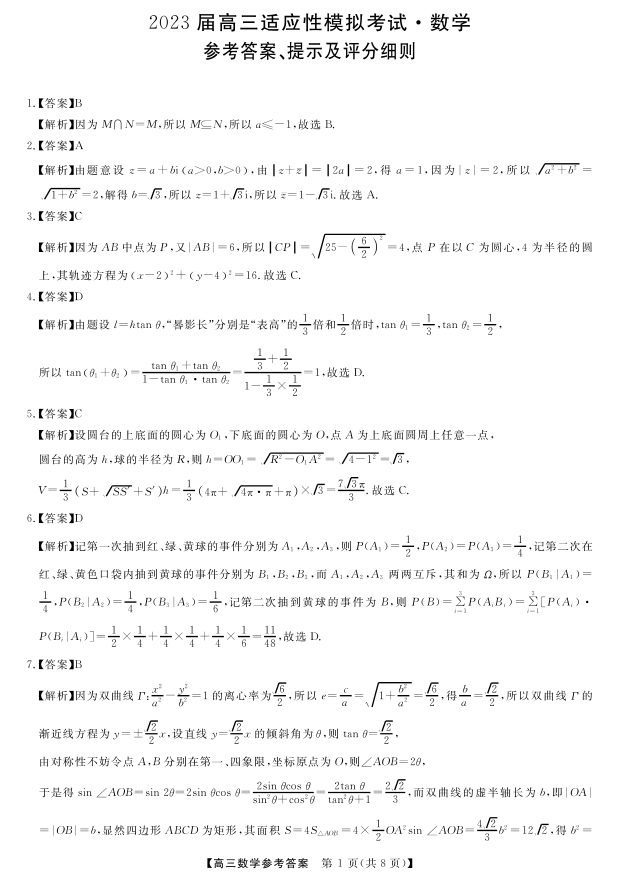 2023 届高三适应性模拟考试·数学
参考答案、提示及评分细则
1.【答案】B
【解析】因为 M∩N=M,所以 M⊆N,所以 a≤-1,故选 B.
2.【答案】A
【解析】由题意设 z=a+bi(a>0,b>0),由|z+z̄|=|2a|=2,得 a=1,因为|z|=2,所以 √(a²+b²)=
√(1+b²)=2,解得 b=√3,所以 z=1+√3i,所以 z̄=1-√3i.故选 A.
3.【答案】C
【解析】因为 AB 中点为 P,又|AB|=6,所以|CP|=√(25-(6/2)²)=4,点 P 在以 C 为圆心,4 为半径的圆
上,其轨迹方程为(x-2)²+(y-4)²=16.故选 C.
4.【答案】D
【解析】由题设 l=htan θ,“晷影长”分别是“表高”的1/3倍和1/2倍时,tan θ₁=1/3,tan θ₂=1/2,
所以 tan(θ₁+θ₂)=(tan θ₁+tan θ₂)/(1-tan θ₁·tan θ₂)=(1/3+1/2)/(1-1/3×1/2)=1,故选 D.
5.【答案】C
【解析】设圆台的上底面的圆心为 O₁,下底面的圆心为 O,点 A 为上底面圆周上任意一点,
圆台的高为 h,球的半径为 R,则 h=OO₁=√(R²-O₁A²)=√(4-1²)=√3,
V=1/3(S+√(SS′)+S′)h=1/3(4π+√(4π·π)+π)×√3=7√3π/3.故选 C.
6.【答案】D
【解析】记第一次抽到红、绿、黄球的事件分别为 A₁,A₂,A₃,则 P(A₁)=1/2,P(A₂)=P(A₃)=1/4,记第二次在
红、绿、黄色口袋内抽到黄球的事件分别为 B₁,B₂,B₃,而 A₁,A₂,A₃ 两两互斥,其和为 Ω,所以 P(B₁|A₁)=
1/4,P(B₂|A₂)=1/4,P(B₃|A₃)=1/6,记第二次抽到黄球的事件为 B,则 P(B)=∑(i=1→3)P(AᵢBᵢ)=∑(i=1→3)[P(Aᵢ)·
P(Bᵢ|Aᵢ)]=1/2×1/4+1/4×1/4+1/4×1/6=11/48,故选 D.
7.【答案】B
【解析】因为双曲线 Γ:x²/a²-y²/b²=1 的离心率为√6/2,所以 e=c/a=√(1+b²/a²)=√6/2,得b/a=√2/2,所以双曲线 Γ 的
渐近线方程为 y=±√2/2x,设直线 y=√2/2x 的倾斜角为 θ,则 tan θ=√2/2,
由对称性不妨令点 A,B 分别在第一、四象限,坐标原点为 O,则∠AOB=2θ,
于是得 sin ∠AOB=sin 2θ=2sin θcos θ=2sin θcos θ/(sin²θ+cos²θ)=2tan θ/(tan²θ+1)=2√2/3,而双曲线的虚半轴长为 b,即|OA|
=|OB|=b,显然四边形 ABCD 为矩形,其面积 S=4S△AOB=4×1/2OA²sin ∠AOB=4√2/3b²=12√2,得 b²=
【高三数学参考答案 第 1 页(共 8 页)】